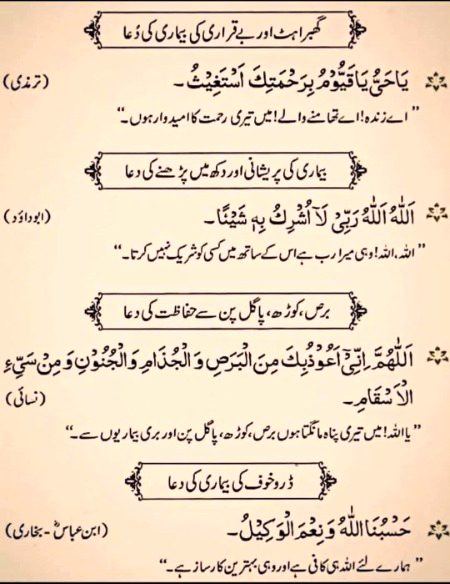 گھبراہٹ اور بے قراری کی بیماری کی دُعا
یَاحَیُّ یَاقَیُّوْمُ بِرَحْمَتِكَ اَسْتَغِیْثُ۔ (ترمذی)
”اے زندہ! اے تھامنے والے! میں تیری رحمت کا امیدوار ہوں۔“
بیماری کی پریشانی اور دکھ میں پڑھنے کی دعا
اَللهُ اَللهُ رَبِّیْ لَآ اُشْرِكُ بِهٖ شَیْئًا۔ (ابوداؤد)
”اللہ، اللہ! وہی میرا رب ہے اس کے ساتھ میں کسی کو شریک نہیں کرتا۔“
برص، کوڑھ، پاگل پن سے حفاظت کی دعا
اَللّٰهُمَّ اِنِّیْٓ اَعُوْذُبِكَ مِنَ الْبَرَصِ وَالْجُذَامِ وَالْجُنُوْنِ وَمِنْ سَیِّیءِ
الْاَسْقَامِ۔ (نسائی)
”یااللہ! میں تیری پناہ مانگتا ہوں برص، کوڑھ، پاگل پن اور بری بیماریوں سے۔“
ڈر و خوف کی بیماری کی دعا
حَسْبُنَا اللهُ وَنِعْمَ الْوَكِیْلُ۔ (ابن عباسؓ - بخاری)
”ہمارے لئے اللہ ہی کافی ہے اور وہی بہترین کارساز ہے۔“